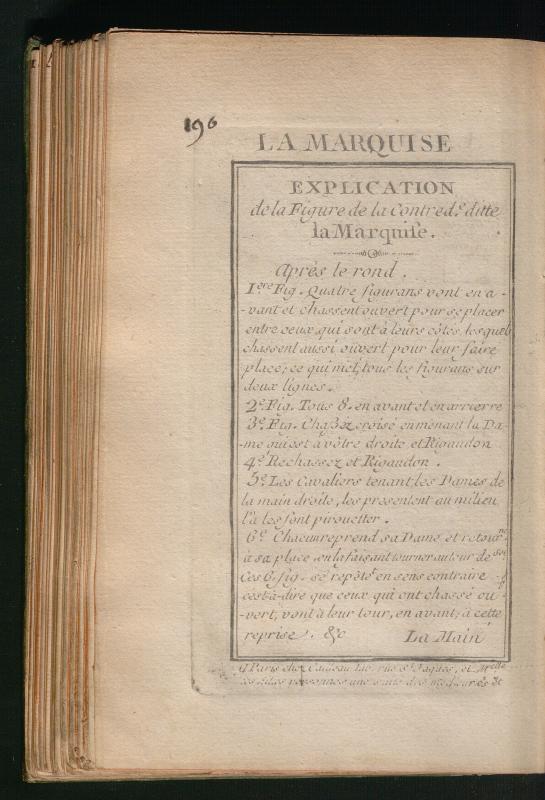 196
LA MARQUISE
EXPLICATION
de la Figure de la Contred.e ditte
la Marquise.
Après le rond.
1.ere Fig. Quatre figurans vont en a-
-vant et chassent ouvert pour se placer
entre ceux qui sont à leurs côtés, lesquels
chassent aussi ouvert pour leur faire
place; ce qui met, tous les figurans sur
deux lignes.
2.e Fig. Tous 8. en avant et en arrierre
3.e Fig. Chassez croisé en menant la Da-
-me qui est à vôtre droite et Rigaudon
4.e Rechassez et Rigaudon.
5.e Les Cavaliers tenant, les Dames de
la main droite, les presentent au milieu
l'à les font pirouetter.
6.e Chacun reprend sa Dame et retourne
à sa place en la faisant tourner autour de soi
Ces 6. fig. se repète.t en sens contraire
c'est-à-dire que ceux qui ont chassé ou-
-vert, vont à leur tour, en avant, à cette
reprise. &c La Main
A Paris chez rue S.t Jaques, et M.elle
personnes une suite des &c